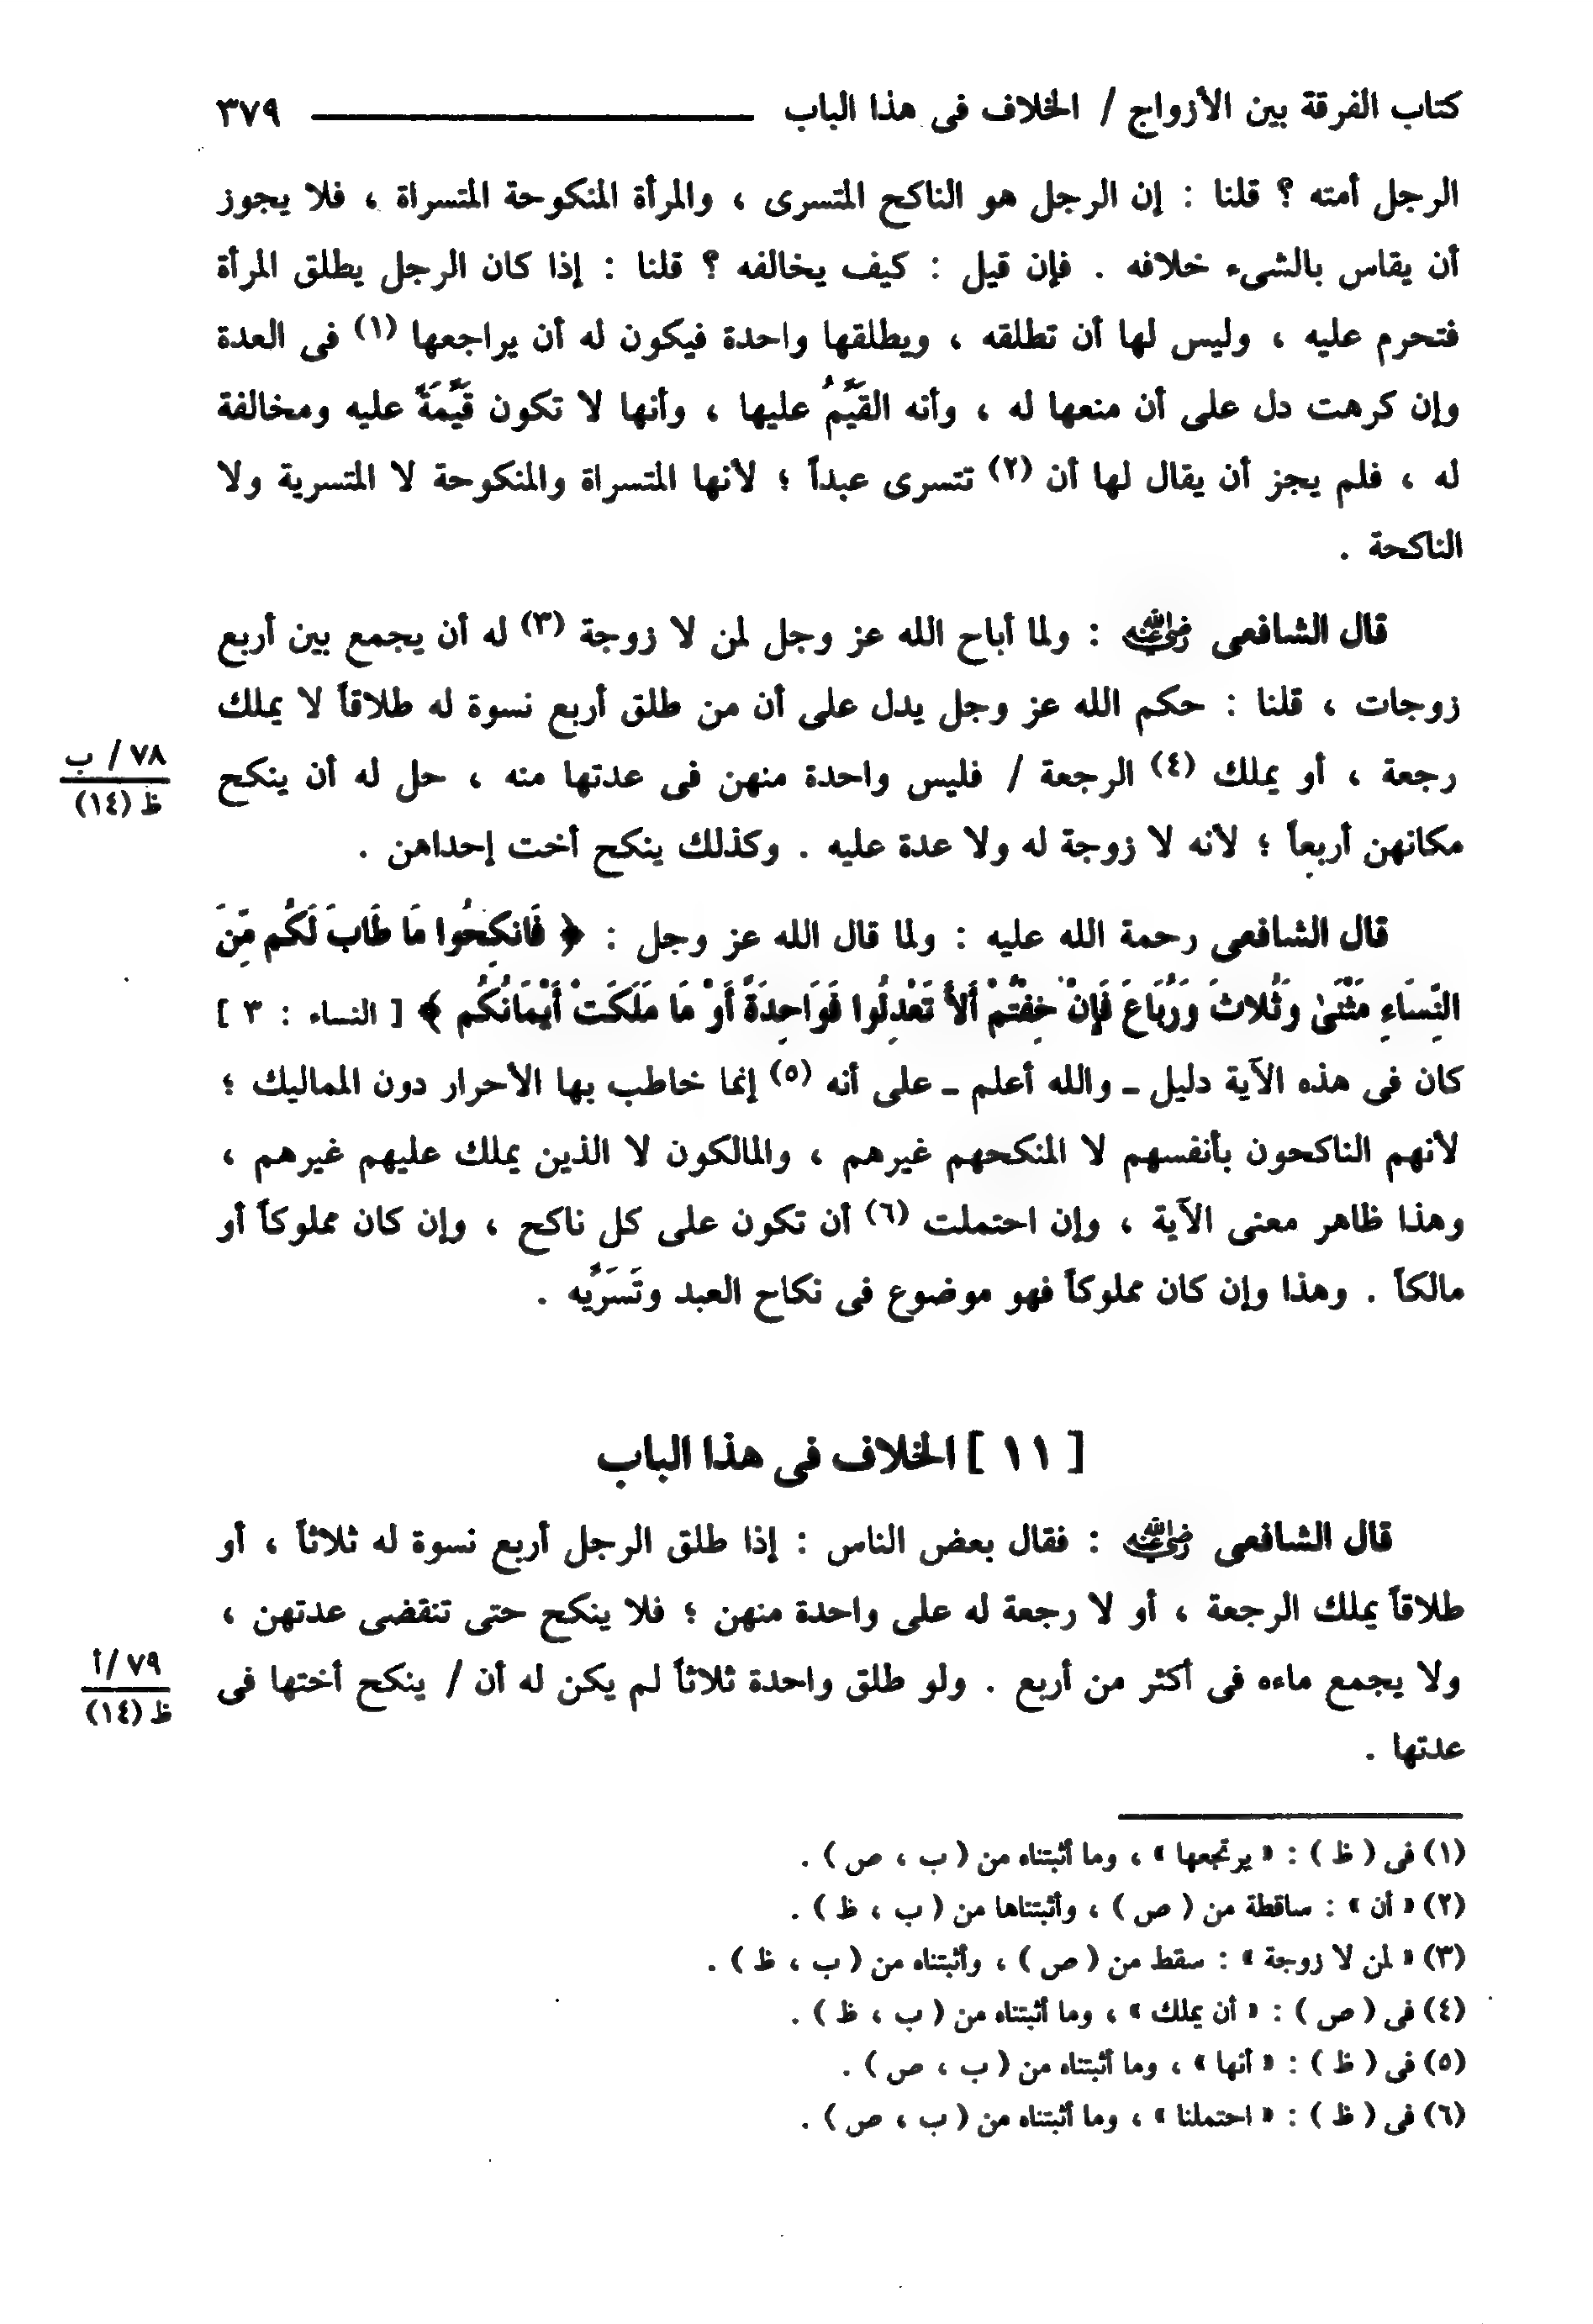 كتاب الفرقة بين الأزواج / الخلاف فى هذا الباب ٣٧٩
الرجل أمته ؟ قلنا : إن الرجل هو الناكح المتسرى ، والمرأة المنكوحة المتسراة ، فلا يجوز
أن يقاس بالشىء خلافه . فإن قيل : كيف يخالفه ؟ قلنا : إذا كان الرجل يطلق المرأة
فتحرم عليه ، وليس لها أن تطلقه ، ويطلقها واحدة فيكون له أن يراجعها (١) فى العدة
وإن كرهت دل على أن منعها له ، وأنه القَيِّمُ عليها ، وأنها لا تكون قَيِّمَةً عليه ومخالفة
له ، فلم يجز أن يقال لها أن (٢) تتسرى عبداً ؛ لأنها المتسراة والمنكوحة لا المتسرية ولا
الناكحة .
قال الشافعى رضي الله عنه : ولما أباح الله عز وجل لمن لا زوجة (٣) له أن يجمع بين أربع
زوجات ، قلنا : حكم الله عز وجل يدل على أن من طلق أربع نسوة له طلاقاً لا يملك
رجعة ، أو يملك (٤) الرجعة / فليس واحدة منهن فى عدتها منه ، حل له أن ينكح
٧٨/ ب
ظ (١٤)
مكانهن أربعاً ؛ لأنه لا زوجة له ولا عدة عليه . وكذلك ينكح أخت إحداهن .
قال الشافعى رحمة الله عليه : ولما قال الله عز وجل : ﴿ فَانكِحُوا مَا طَابَ لَكُم مِّنَ
النِّسَاءِ مَثْنَىٰ وَثُلاثَ وَرُبَاعَ فَإِنْ خِفْتُمْ أَلاَّ تَعْدِلُوا فَوَاحِدَةً أَوْ مَا مَلَكَتْ أَيْمَانُكُم ﴾ [ النساء : ٣ ]
كان فى هذه الآية دليل ـ والله أعلم ـ على أنه (٥) إنما خاطب بها الأحرار دون المماليك ؛
لأنهم الناكحون بأنفسهم لا المنكحهم غيرهم ، والمالكون لا الذين يملك عليهم غيرهم ،
وهذا ظاهر معنى الآية ، وإن احتملت (٦) أن تكون على كل ناكح ، وإن كان مملوكاً أو
مالكاً . وهذا وإن كان مملوكاً فهو موضوع فى نكاح العبد وتَسَرِّيه .
[ ١١ ] الخلاف فى هذا الباب
قال الشافعى رضي الله عنه : فقال بعض الناس : إذا طلق الرجل أربع نسوة له ثلاثاً ، أو
طلاقاً يملك الرجعة ، أو لا رجعة له على واحدة منهن ؛ فلا ينكح حتى تنقضى عدتهن ،
ولا يجمع ماءه فى أكثر من أربع . ولو طلق واحدة ثلاثاً لم يكن له أن / ينكح أختها فى
٧٩/أ
ظ (١٤)
عدتها .
(١) فى ( ظ ) : « يرتجعها » ، وما أثبتناه من ( ب ، ص ) .
(٢) « أن » : ساقطة من ( ص ) ، وأثبتناها من ( ب ، ظ ) .
(٣) « لمن لا زوجة » : سقط من ( ص ) ، وأثبتناه من ( ب ، ظ ) .
(٤) فى ( ص ) : « أن يملك » ، وما أثبتناه من ( ب ، ظ ) .
(٥) فى ( ظ ) : « أنها » ، وما أثبتناه من ( ب ، ص ) .
(٦) فى ( ظ ) : « احتملنا » ، وما أثبتناه من ( ب ، ص ) .